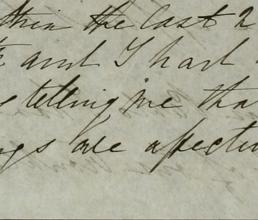 thin the last 2
and I had
telling me tha
ngs are affectu